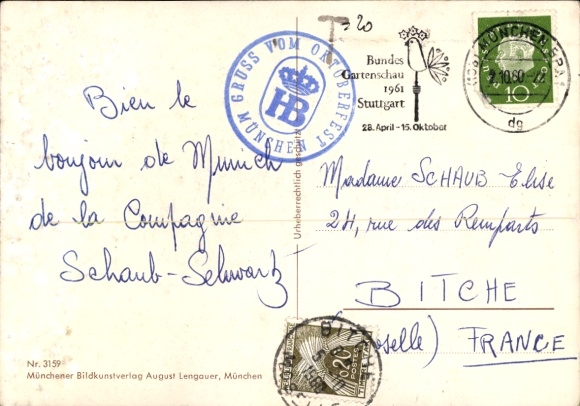 Bien le
bonjour de Munich
de la Compagnie
Schaub-Schwartz
T = 20
GRUSS VOM OKTOBERFEST
HB
MÜNCHEN
Bundes
Gartenschau
1961
Stuttgart
28. April - 15. Oktober
MÜNCHEN
2.10.60
dg
10
Urheberrechtlich geschützt
Madame SCHAUB Elise
24, rue des Remparts
BITCHE
(Moselle) FRANCE
0,20
POSTES
BITCHE
Nr. 3159
Münchener Bildkunstverlag August Lengauer, München